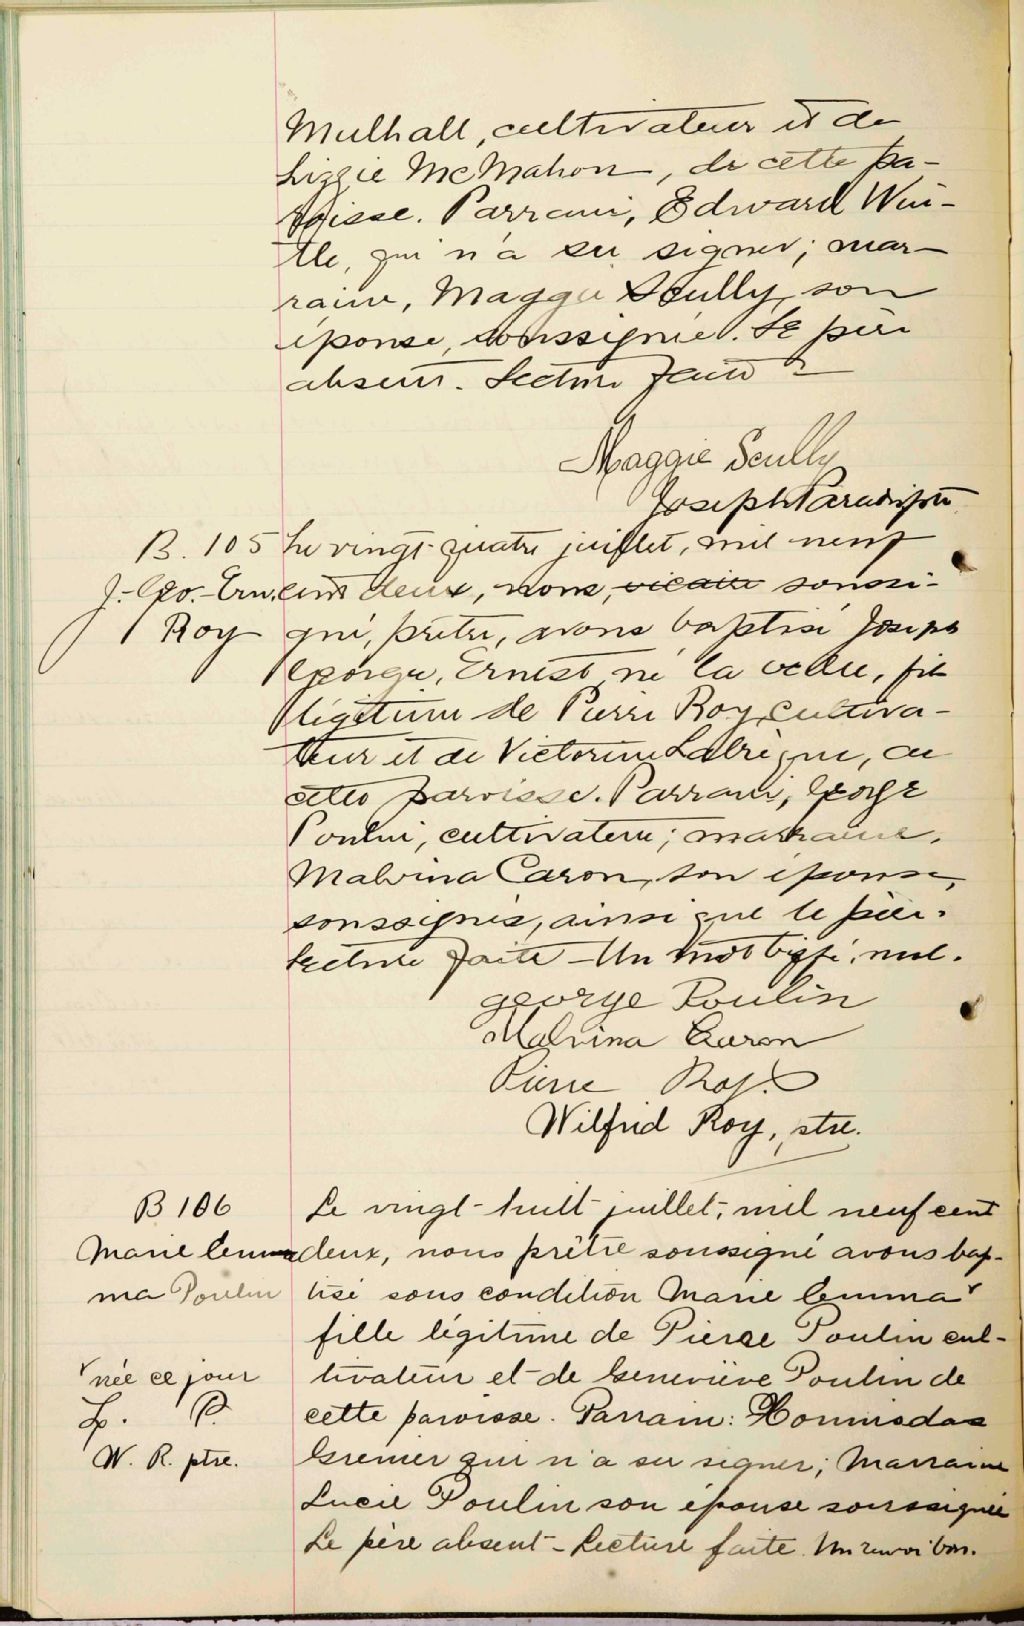 Mulhall, cultivateur et de
Lizzie McMahon, de cette pa-
roisse. Parrain, Edward Win-
tle, qui n'a su signer; mar-
raine, Maggie Scully, son
épouse, soussignée. Le père
absent. Lecture faite
Maggie Scully
Joseph Paradis ptre
B. 105
J.-Geo.-Ern.
Roy
Le vingt-quatre juillet, mil neuf
cent deux, nous, vicaire soussi-
gné, prêtre, avons baptisé Joseph
George, Ernest, né la veille, fils
légitime de Pierre Roy, cultiva-
teur et de Victorine Labrègue, de
cette paroisse. Parrain, George
Poulin, cultivateur; marraine,
Malvina Caron, son épouse,
soussignés, ainsi que le père.
Lecture faite - Un mot biffé, nul.
George Poulin
Malvina Caron
Pierre Roy.
Wilfrid Roy, ptre.
B 106
Marie Emma
ma Poulin
Le vingt-huit juillet, mil neuf cent
deux, nous prêtre soussigné avons bap-
tisé sous condition Marie Emma
fille légitime de Pierre Poulin cul-
tivateur et de Geneviève Poulin de
cette paroisse. Parrain: Hormisdas
Grenier qui n'a su signer; Marraine
Lucie Poulin son épouse soussignée
Le père absent - Lecture faite. Un renvoi bon.
née ce jour
L. P.
W. R. ptre.